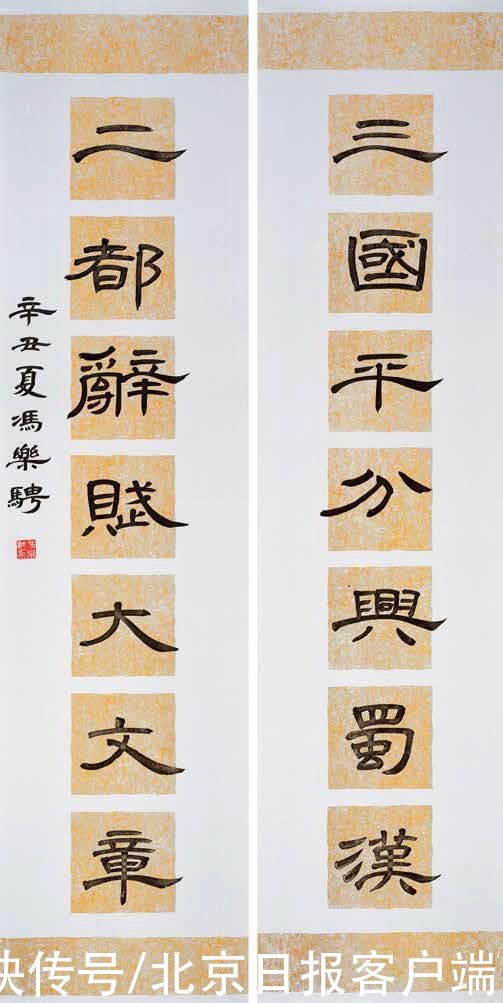 三國平分興蜀漢
二都辭賦大文章
辛丑夏馮樂騁
快传号/北京日报客户端